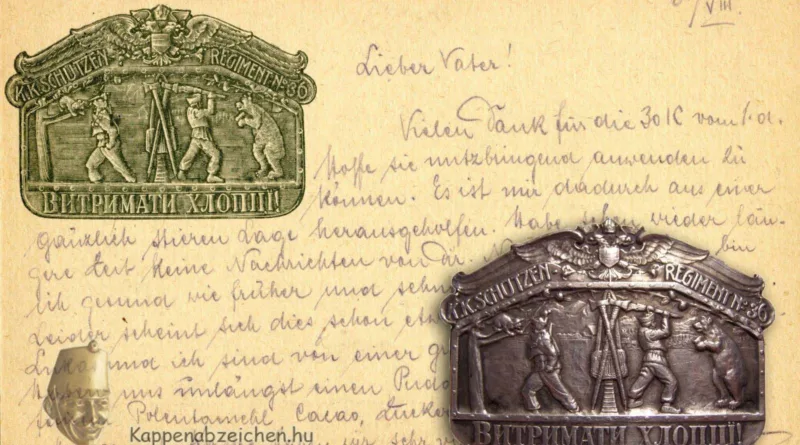 /VIII.
K.K.SCHÜTZEN REGIMENT Nº36
ВИТРИМАТИ ХЛОПЦІ!
Lieber Vater!
Vielen Dank für die 30 K vom 1. d.
Hoffe sie nutzbringend anwenden zu
können. Es ist mir dadurch aus einer
gänzlich stieren Lage herausgeholfen. Habe schon wieder län-
gere Zeit keine Nachrichten von Dir. bin
ich gesund wie früher und
Leider scheint sich dies schon
und ich sind von einer
uns unlängst einen
Polentamehl Cacao, Zucker
K.K.SCHÜTZEN- REGIMENT Nº36
ВИТРИМАТИ ХЛОПЦІ!
Kappenabzeichen.hu